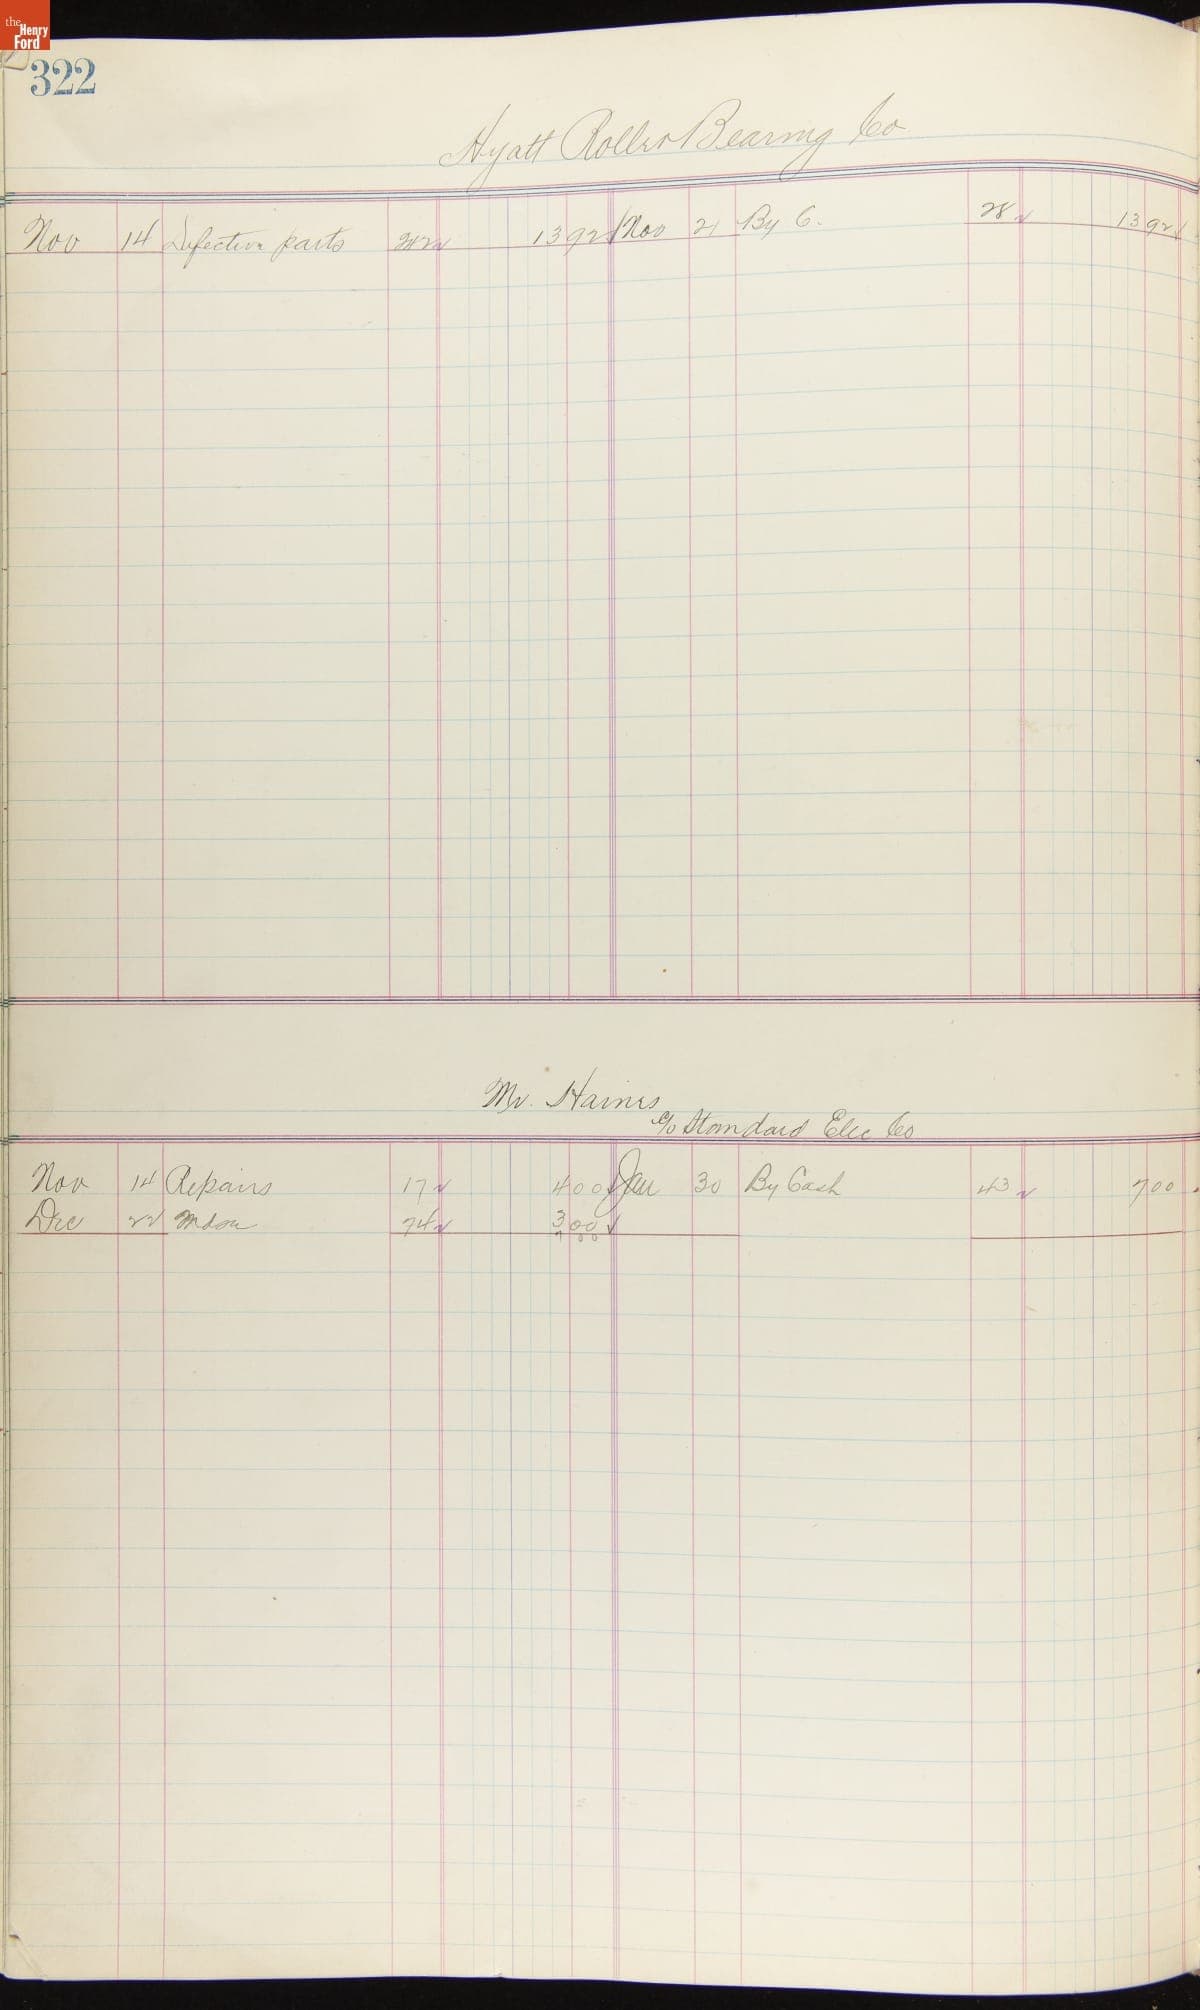 the
Henry
Ford
322
Hyatt Roller Bearing Co
Nov 14 Defective parts 242 13 92 Nov 21 By C. 28 13 92
Mr. Haines
c/o Standard Elec Co
Nov 14 Repairs 17 4 00 Jan 30 By Cash 43 7 00
Dec 22 Mdse 74 3 00
7 00